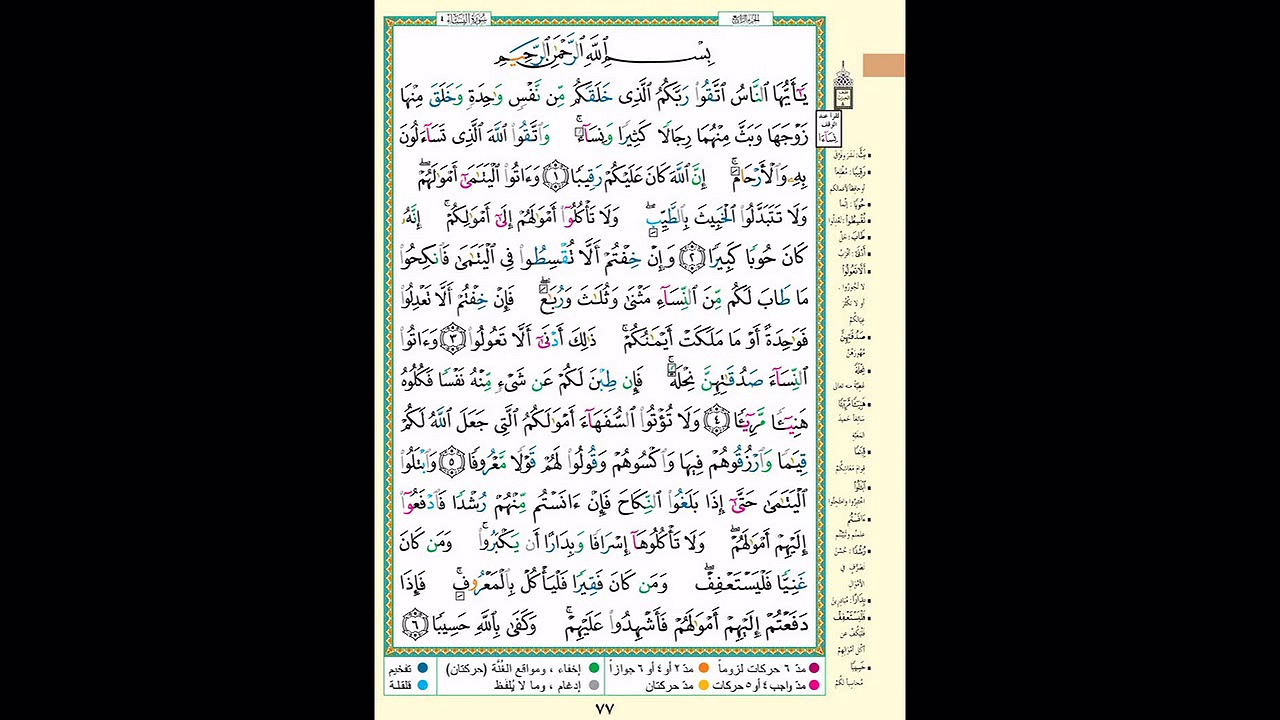 سورة النساء ٤
الجزء الرابع
بِسْمِ ٱللَّهِ ٱلرَّحْمَٰنِ ٱلرَّحِيمِ
يَٰٓأَيُّهَا ٱلنَّاسُ ٱتَّقُوا۟ رَبَّكُمُ ٱلَّذِى خَلَقَكُم مِّن نَّفْسٍ وَٰحِدَةٍ وَخَلَقَ مِنْهَا
زَوْجَهَا وَبَثَّ مِنْهُمَا رِجَالًا كَثِيرًا وَنِسَآءً ۚ وَٱتَّقُوا۟ ٱللَّهَ ٱلَّذِى تَسَآءَلُونَ
بِهِۦ وَٱلْأَرْحَامَ ۚ إِنَّ ٱللَّهَ كَانَ عَلَيْكُمْ رَقِيبًا ١ وَءَاتُوا۟ ٱلْيَتَٰمَىٰٓ أَمْوَٰلَهُمْ ۖ
وَلَا تَتَبَدَّلُوا۟ ٱلْخَبِيثَ بِٱلطَّيِّبِ ۖ وَلَا تَأْكُلُوٓا۟ أَمْوَٰلَهُمْ إِلَىٰٓ أَمْوَٰلِكُمْ ۚ إِنَّهُۥ
كَانَ حُوبًا كَبِيرًا ٢ وَإِنْ خِفْتُمْ أَلَّا تُقْسِطُوا۟ فِى ٱلْيَتَٰمَىٰ فَٱنكِحُوا۟
مَا طَابَ لَكُم مِّنَ ٱلنِّسَآءِ مَثْنَىٰ وَثُلَٰثَ وَرُبَٰعَ ۖ فَإِنْ خِفْتُمْ أَلَّا تَعْدِلُوا۟
فَوَٰحِدَةً أَوْ مَا مَلَكَتْ أَيْمَٰنُكُمْ ۚ ذَٰلِكَ أَدْنَىٰٓ أَلَّا تَعُولُوا۟ ٣ وَءَاتُوا۟
ٱلنِّسَآءَ صَدُقَٰتِهِنَّ نِحْلَةً ۚ فَإِن طِبْنَ لَكُمْ عَن شَىْءٍ مِّنْهُ نَفْسًا فَكُلُوهُ
هَنِيٓـًٔا مَّرِيٓـًٔا ٤ وَلَا تُؤْتُوا۟ ٱلسُّفَهَآءَ أَمْوَٰلَكُمُ ٱلَّتِى جَعَلَ ٱللَّهُ لَكُمْ
قِيَٰمًا وَٱرْزُقُوهُمْ فِيهَا وَٱكْسُوهُمْ وَقُولُوا۟ لَهُمْ قَوْلًا مَّعْرُوفًا ٥ وَٱبْتَلُوا۟
ٱلْيَتَٰمَىٰ حَتَّىٰٓ إِذَا بَلَغُوا۟ ٱلنِّكَاحَ فَإِنْ ءَانَسْتُم مِّنْهُمْ رُشْدًا فَٱدْفَعُوٓا۟
إِلَيْهِمْ أَمْوَٰلَهُمْ ۖ وَلَا تَأْكُلُوهَآ إِسْرَافًا وَبِدَارًا أَن يَكْبَرُوا۟ ۚ وَمَن كَانَ
غَنِيًّا فَلْيَسْتَعْفِفْ ۖ وَمَن كَانَ فَقِيرًا فَلْيَأْكُلْ بِٱلْمَعْرُوفِ ۚ فَإِذَا
دَفَعْتُمْ إِلَيْهِمْ أَمْوَٰلَهُمْ فَأَشْهِدُوا۟ عَلَيْهِمْ ۚ وَكَفَىٰ بِٱللَّهِ حَسِيبًا ٦
تقرأ عند
الوقف
نِسَآءَا
رَقِيبًا: مُطَّلِعاً
حُوبًا: إثماً
طَابَ: حَلَّ
أَدْنَىٰ: أقرب
أَلَّا تَعُولُوا۟
لا تَجُوروا .
أو لا تكثُرَ
عيالُكُمْ
صَدُقَٰتِهِنَّ
مُهورَهُنَّ
نِحْلَةً
عَطِيَّةً منه تعالى
هَنِيٓـًٔا مَّرِيٓـًٔا
سائغاً حميدَ
المَغَبَّةِ
قِيَٰمًا
قِوامَ مَعاشِكُمْ
ٱبْتَلُوا۟
اختَبِروا وامْتَحِنوا
ءَانَسْتُم
عَلِمتُم وتَبَيَّنتُم
رُشْدًا: حُسْنَ
تَصَرُّفٍ في
الأموالِ
بِدَارًا: مُبادِرينَ
فَلْيَسْتَعْفِفْ
فليَكُفَّ عن
أكلِ أموالِهِمْ
حَسِيبًا
مُحاسِباً لَكُمْ
مدّ ٦ حركات لزوماً
مدّ ٢ أو ٤ أو ٦ جوازاً
إخفاء ، ومواقع الغُنَّة (حركتان)
تفخيم
مدّ واجب ٤ أو ٥ حركات
مدّ حركتان
إدغام ، وما لا يُلفَظ
قلقلة
٧٧